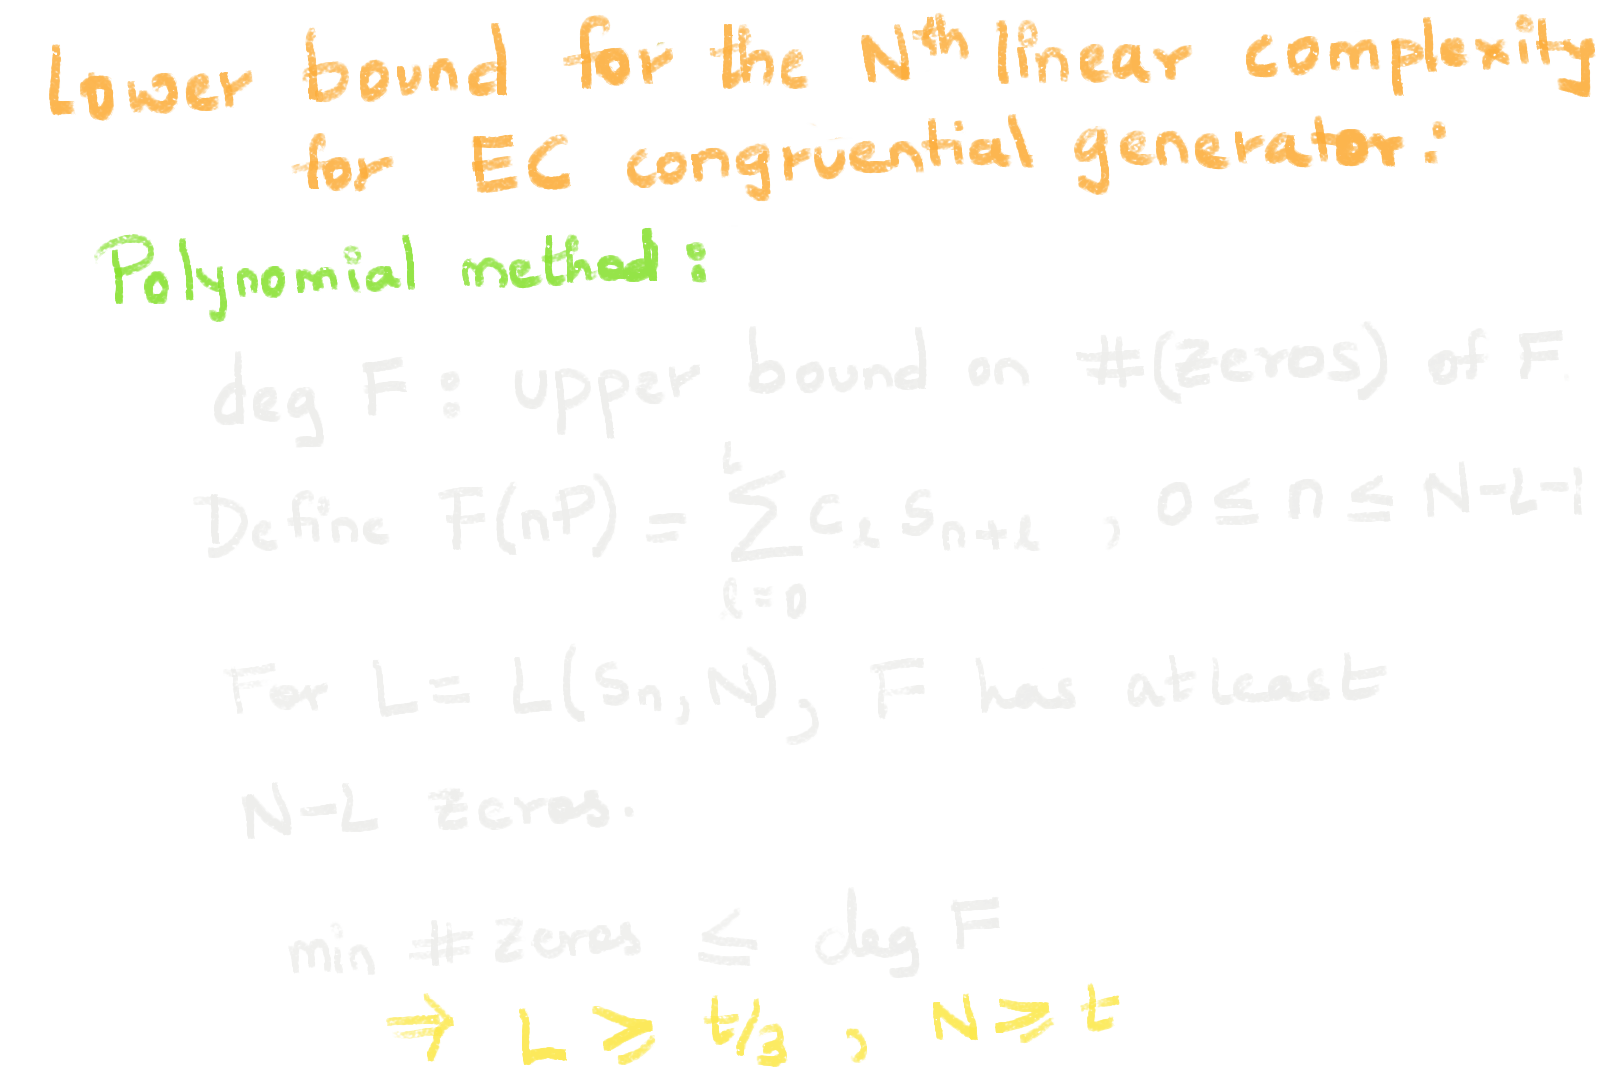 Lower bound for the Nth linear complexity
for EC congruential generator:
Polynomial method:
deg F: upper bound on #(zeros) of F.
Define F(nP) = L∑l=0 cl sn+l , 0 ≤ n ≤ N-L-1
For L = L(sn, N), F has atleast
N-L zeros.
min # zeros ≤ deg F
⇒ L ≥ t/3 , N ≥ t